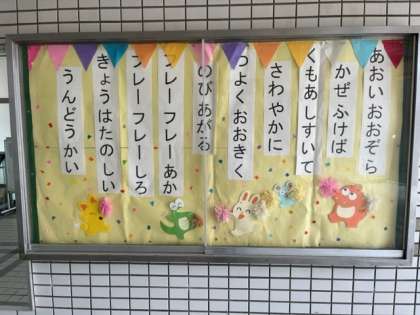 あおいおおぞら
かぜふけば
くもあしすいて
さわやかに
つよくおおきく
のびあがる
フレーフレー あか
フレーフレーしろ
きょうはたのしい
うんどうかい